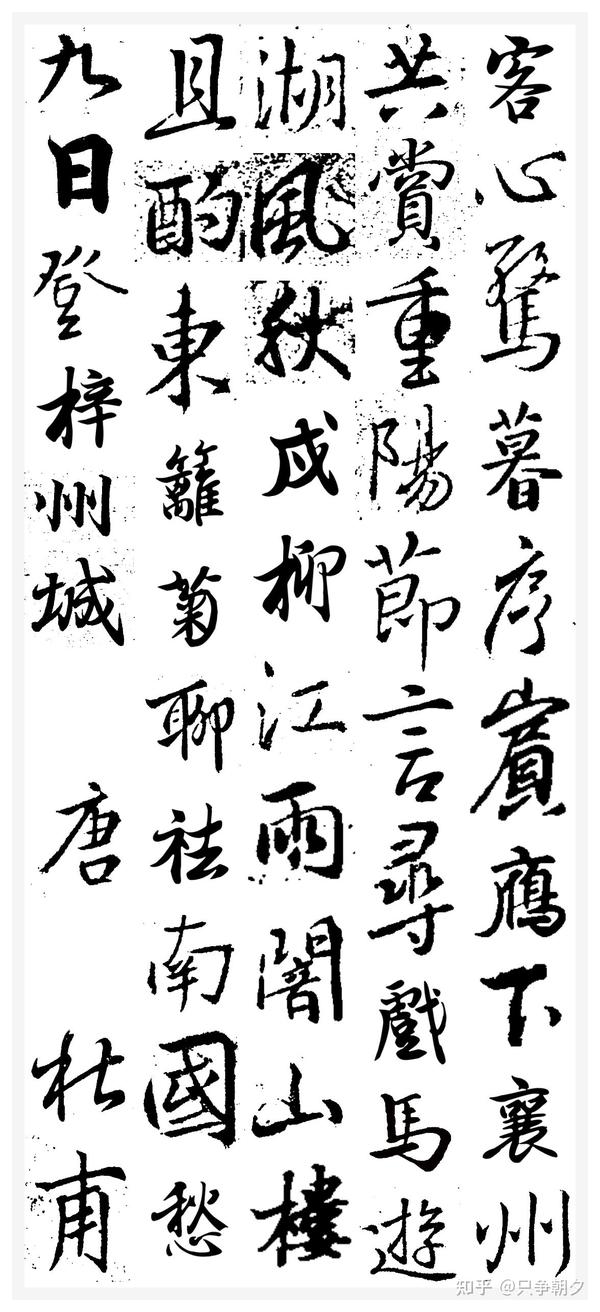 客心驚暮序賓鴈下襄州
共賞重陽節言尋戲馬遊
湖風秋戍柳江雨闇山樓
且酌東籬菊聊祛南國愁
九日登梓州城 唐 杜甫
知乎 @只争朝夕